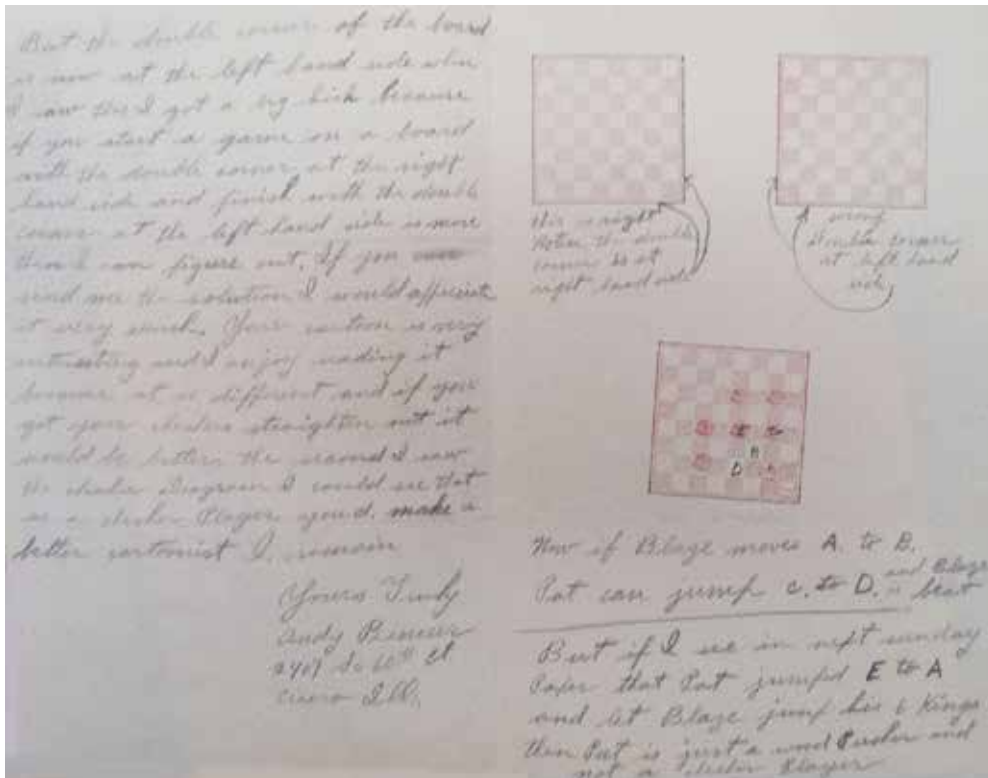 But the double corner of the board
is now at the left hand side when
I saw this I got a big kick because
if you start a game on a board
with the double corner at the right
hand side and finish with the double
corner at the left hand side is more
then I can figure out. If you
send me the solution I would appreciate
it very much. Your cartoon is very
interesting and I enjoy reading it
because it is different and if you
get your checkers straighten out it
would be better. the second I saw
the checker Diagram I could see that
as a checker Player you'd make a
better cartoonist I remain
Yours Truly
Andy
Cicero Ill.
this is right
Notice the double
corner is at
right hand side
wrong
double corner
at left hand
side
E
B
D
Now if Blaze moves A. to B.
Pat can jump C. to D. and Blaze
is beat
But if I see in next sunday
Paper that Pat jumped E to A
and let Blaze jump his 6 Kings
then Pat is just a wood Pusher and
not a checker Player